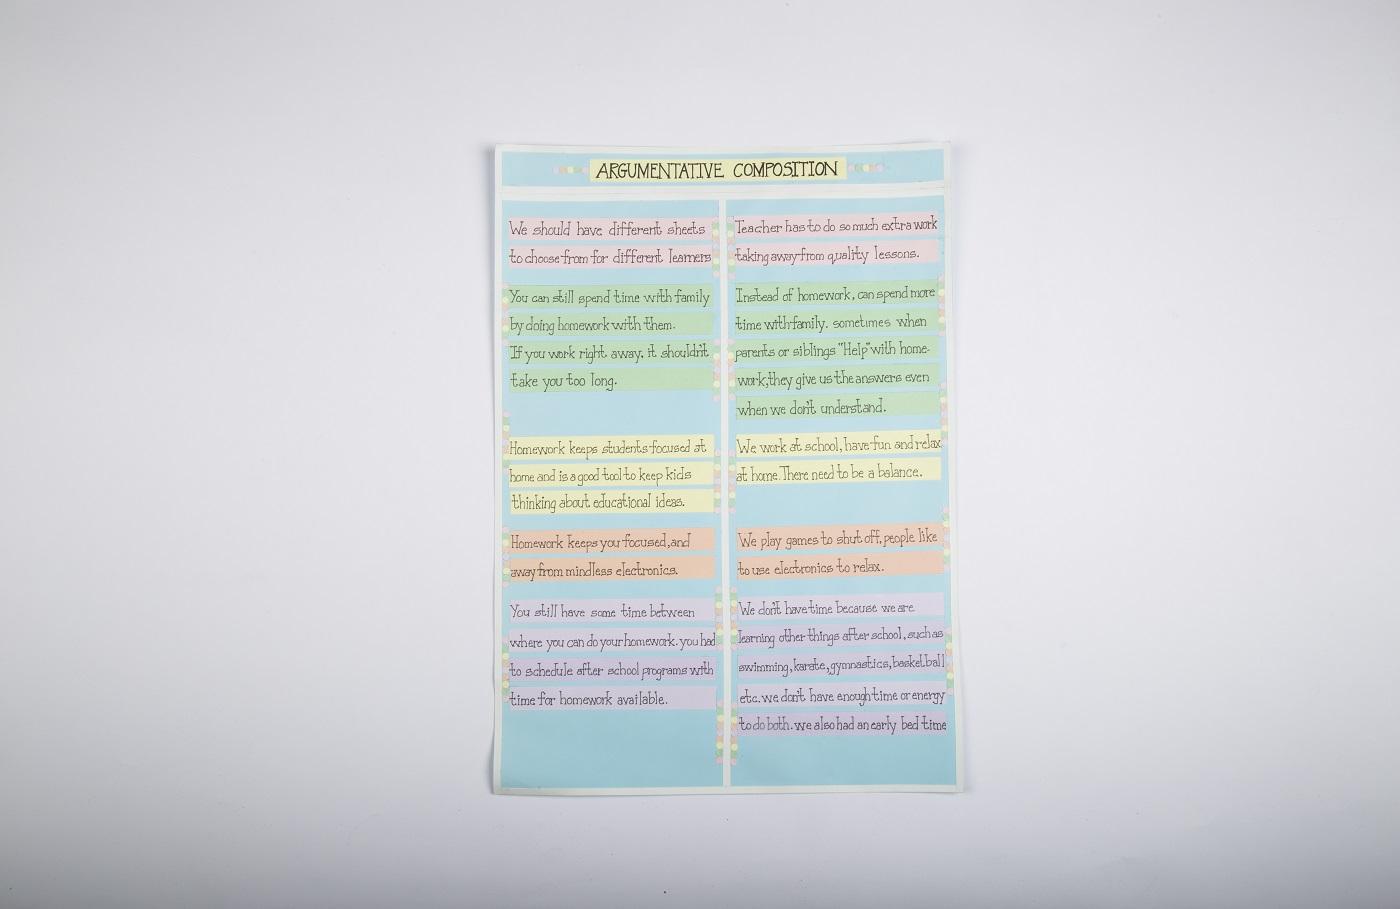 ARGUMENTATIVE COMPOSITION
We should have different sheets
to choose from for different learners
You can still spend time with family
by doing homework with them.
If you work right away, it shouldn't
take you too long.
Homework keeps students focused at
home and is a good tool to keep kids
thinking about educational ideas.
Homework keeps you focused, and
away from mindless electronics.
You still have some time between
where you can do your homework. you had
to schedule after school programs with
time for homework available.
Teacher has to do so much extra work
taking away from quality lessons.
Instead of homework, can spend more
time with family. sometimes when
parents or siblings "Help" with home-
work, they give us the answers even
when we don't understand.
We work at school, have fun and relax
at home. There need to be a balance.
We play games to shut off, people like
to use electronics to relax.
We don't have time because we are
learning other things after school, such as
swimming, karate, gymnastics, basketball
etc. we don't have enough time or energy
to do both. we also had an early bed time